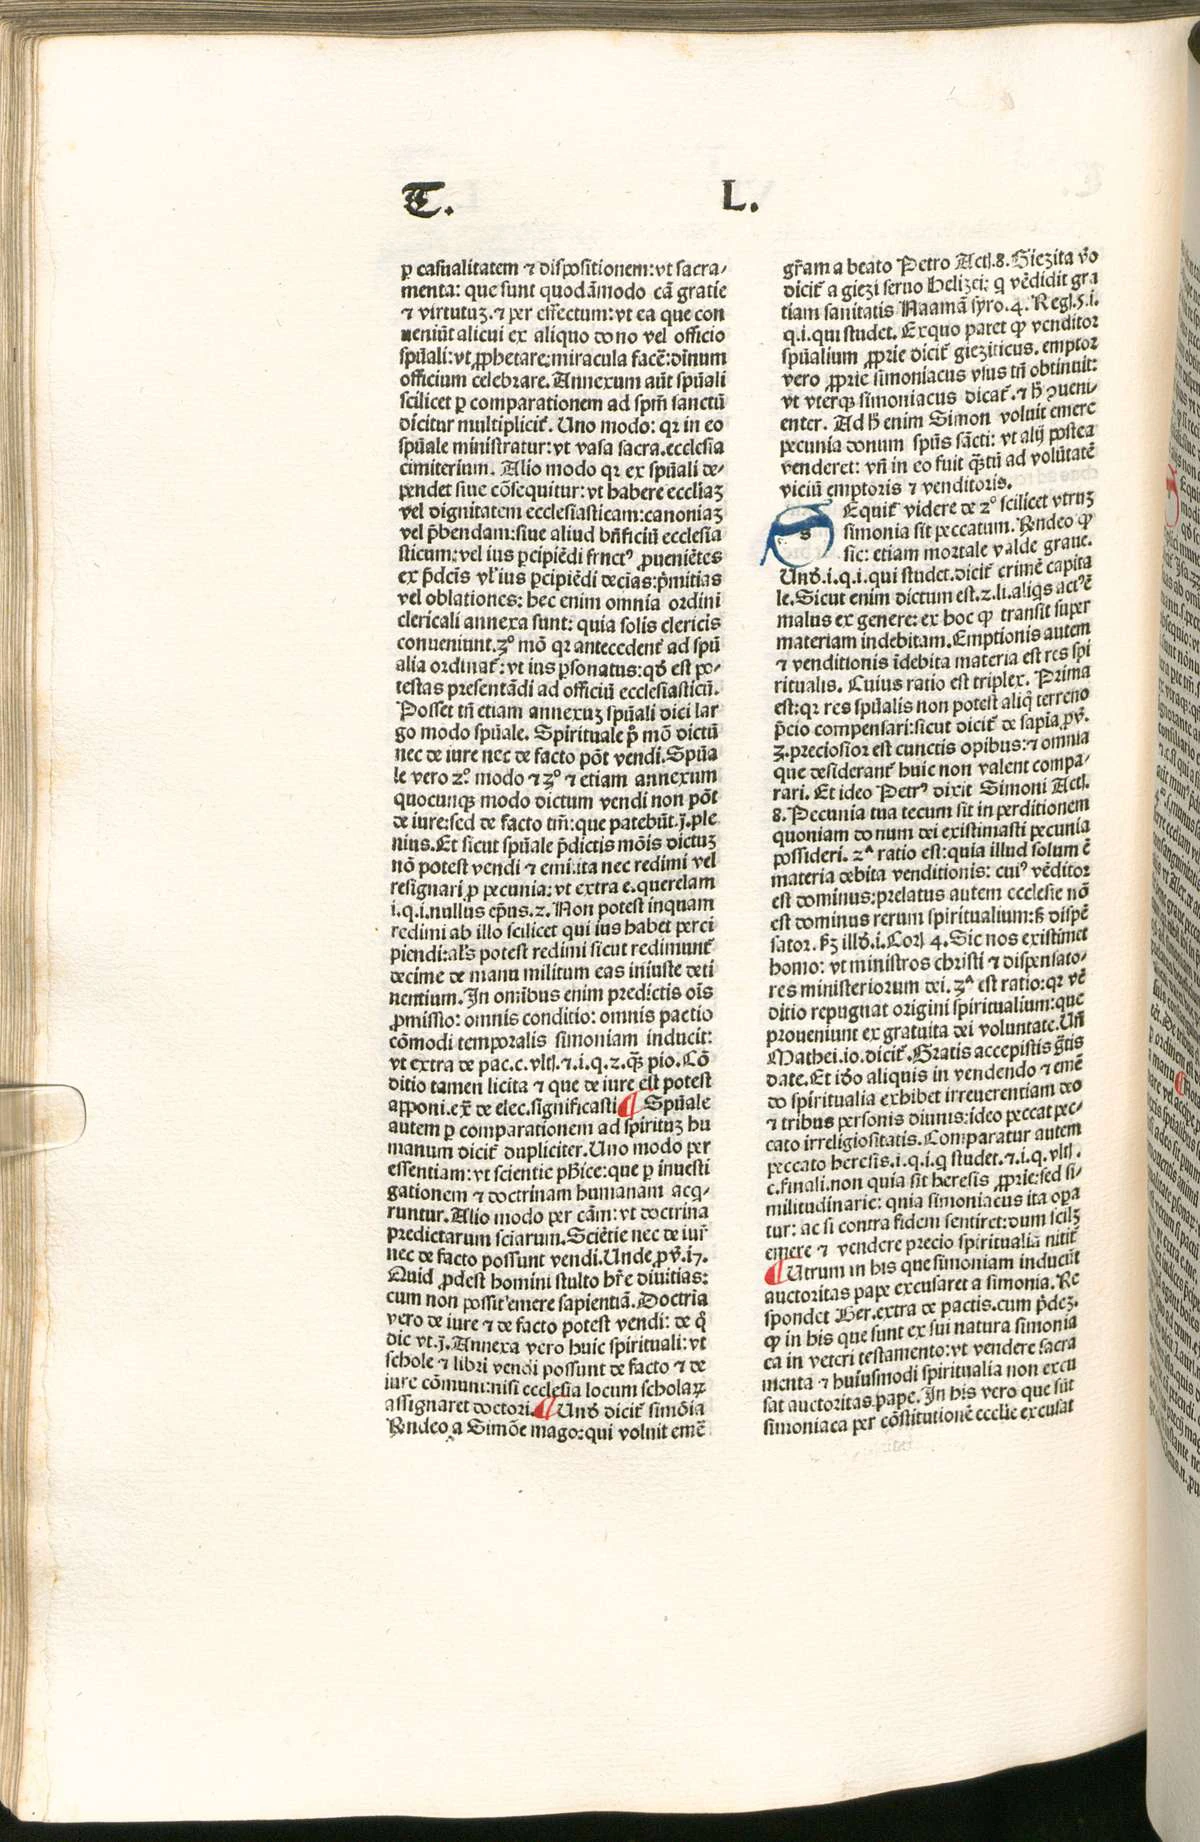 T. L.
ꝑ casualitatem ⁊ dispositionem: vt sacra-
menta: que sunt quodāmodo cā gratie
⁊ virtutuꝫ. ⁊ per effectum: vt ea que con
ueniūt alicui ex aliquo dono vel officio
spūali: vt ꝓphetare: miracula facē: diuinum
officium celebrare. Annexum aūt spūali
scilicet ꝑ comparationem ad spm̄ sanctū
dicitur multiplicit̄. Uno modo: qr in eo
spūale ministratur: vt vasa sacra. ecclesia
cimiterium. Alio modo qr ex spūali de-
pendet siue cōsequitur: vt habere eccl̄iaꝫ
vel dignitatem ecclesiasticam: canoniaꝫ
vel p̄bendam: siue aliud bn̄ficiū ecclesia
sticum: vel ius ꝑcipiēdi fructꝰ ꝓueniētes
ex p̄dcīs vl̓ ius ꝑcipiēdi decias: p̄mitias
vel oblationes: hec enim omnia ordini
clericali annexa sunt: quia solis clericis
conueniunt. 3º mō qr antecedent̄ ad spū
alia ordinat̄: vt ius ꝑsonatus: qđ est po-
testas presentādi ad officiū ecclesiasticū.
Posset tn̄ etiam annexuꝫ spūali dici lar
go modo spūale. Spirituale p̊ mō dictū
nec de iure nec de facto pōt vendi. Spūa
le vero 2º modo ⁊ 3º ⁊ etiam annexum
quocunqꝫ modo dictum vendi non pōt
de iure: sed de facto tm̄: que patebūt. j. ple
nius. Et sicut spūale p̄dictis mōis dictuꝫ
nō potest vendi ⁊ emi: ita nec redimi vel
resignari ꝓ pecunia: vt extra e. querelam
i. q. i. nullus ep̄us. 2. Non potest inquam
redimi ab illo scilicet qui ius habet perci
piendi: al̓s potest redimi sicut redimunt̄
decime de manu militum eas iniuste deti
nentium. In omībus enim predictis oīs
ꝓmissio: omnis conditio: omnis pactio
cōmodi temporalis simoniam inducit:
vt extra de pac. c. vltī. ⁊. i. q. 2. qꝫ pio. Cō
ditio tamen licita ⁊ que de iure est potest
apponi. ex̄ de elec. significasti ¶ Spūale
autem ꝑ comparationem ad spirituꝫ hu
manum dicit̄ dupliciter. Uno modo per
essentiam: vt scientie phīce: que ꝑ inuesti
gationem ⁊ doctrinam humanam acq-
runtur. Alio modo per cām: vt doctrina
predictarum sciarum. Sciētie nec de iur̄
nec de facto possunt vendi. Unde ꝓv̄. 17.
Quid ꝓdest homini stulto hr̄e diuitias:
cum non possit emere sapientiā. Doctria
vero de iure ⁊ de facto potest vendi: de q̊
dic vt. j. Annexa vero huic spirituali: vt
schole ⁊ libri vendi possunt de facto ⁊ de
iure cōmuni: nisi ecclesia locum scholaꝝ
assignaret doctori. ¶ Unđ dicit̄ simōia
Rn̄deo a Simōe mago: qui voluit emē
gr̄am a beato Petro Actī. 8. Giezita v̊o
dicit̄ a giezi seruo Helizei: q vēdidit gra
tiam sanitatis Naamā syro. 4. Regī. 5. i.
q. i. qui studet. Ex quo paret qꝙ venditor
spūalium ꝓprie dicit̄ giezīticus. emptor
vero ꝓprie simoniacus vsus tn̄ obtinuit:
vt vterqꝫ simoniacus dicat̄. ⁊ h̄ ꝯueni-
enter. Ad h̄ enim Simon voluit emere
pecunia donum spūs sācti: vt alij postea
venderet: vn̄ in eo fuit qꝫtū ad volūtatē
viciū emptoris ⁊ venditoris.
SEquit̄ videre de 2º scilicet vtruꝫ
simonia sit peccatum. Rn̄deo ꝙ
sic: etiam mortale valde graue.
Unđ. i. q. i. qui studet. dicit̄ crimē capita
le. Sicut enim dictum est. 2. li. aliqs actꝰ ē
malus ex genere: ex hoc ꝙ transit super
materiam indebitam. Emptionis autem
⁊ venditionis īdebita materia est res spi
ritualis. Cuius ratio est triplex. Prima
est: qr res spūalis non potest aliq̊ terreno
p̄cio compensari: sicut dicit̄ de sapīa ꝓv̄.
3. preciosior est cunctis opibus: ⁊ omnia
que desiderant̄ huic non valent compa-
rari. Et ideo Petrꝰ dixit Simoni Actī.
8. Pecunia tua tecum sit in perditionem
quoniam donum dei existimasti pecunia
possideri. 2ª ratio est: quia illud solum ē
materia debita venditionis: cuiꝰ vēditor
est dominus: prelatus autem ecclesie nō
est dominus rerum spiritualium: ß dispē
sator. ßꝫ illđ. i. Corī 4. Sic nos existimet
homo: vt ministros christi ⁊ dispensato-
res ministeriorum dei. 3ª est ratio: qr vē
ditio repugnat origini spiritualium: que
proueniunt ex gratuita dei voluntate. Un̄
Mathei. 10. dicit̄. Gratis accepistis gr̄tis
date. Et iđo aliquis in vendendo ⁊ emē
do spiritualia exhibet irreuerentiam deo
⁊ tribus personis diuinis: ideo peccat pec-
cato irreligiositatis. Comparatur autem
peccato heresis. i. q. i. q studet. ⁊. i. q. vltī.
c. finali. non quia sit heresis ꝓprie: sed si-
militudinarie: quia simoniacus ita oꝑa
tur: ac si contra fidem sentiret: dum scilꝫ
emere ⁊ vendere precio spiritualia nitit̄
¶ Utrum in his que simoniam inducūt
auctoritas pape excusaret a simonia. Re
spondet Ber. extra de pactis. cum p̄deꝫ.
ꝙ in his que sunt ex sui natura simonia
ca in veteri testamento: vt vendere sacra
menta ⁊ huiusmodi spiritualia non excu
sat auctoritas pape. In his vero que sūt
simoniaca per cōstitutionē ecclīe excusat